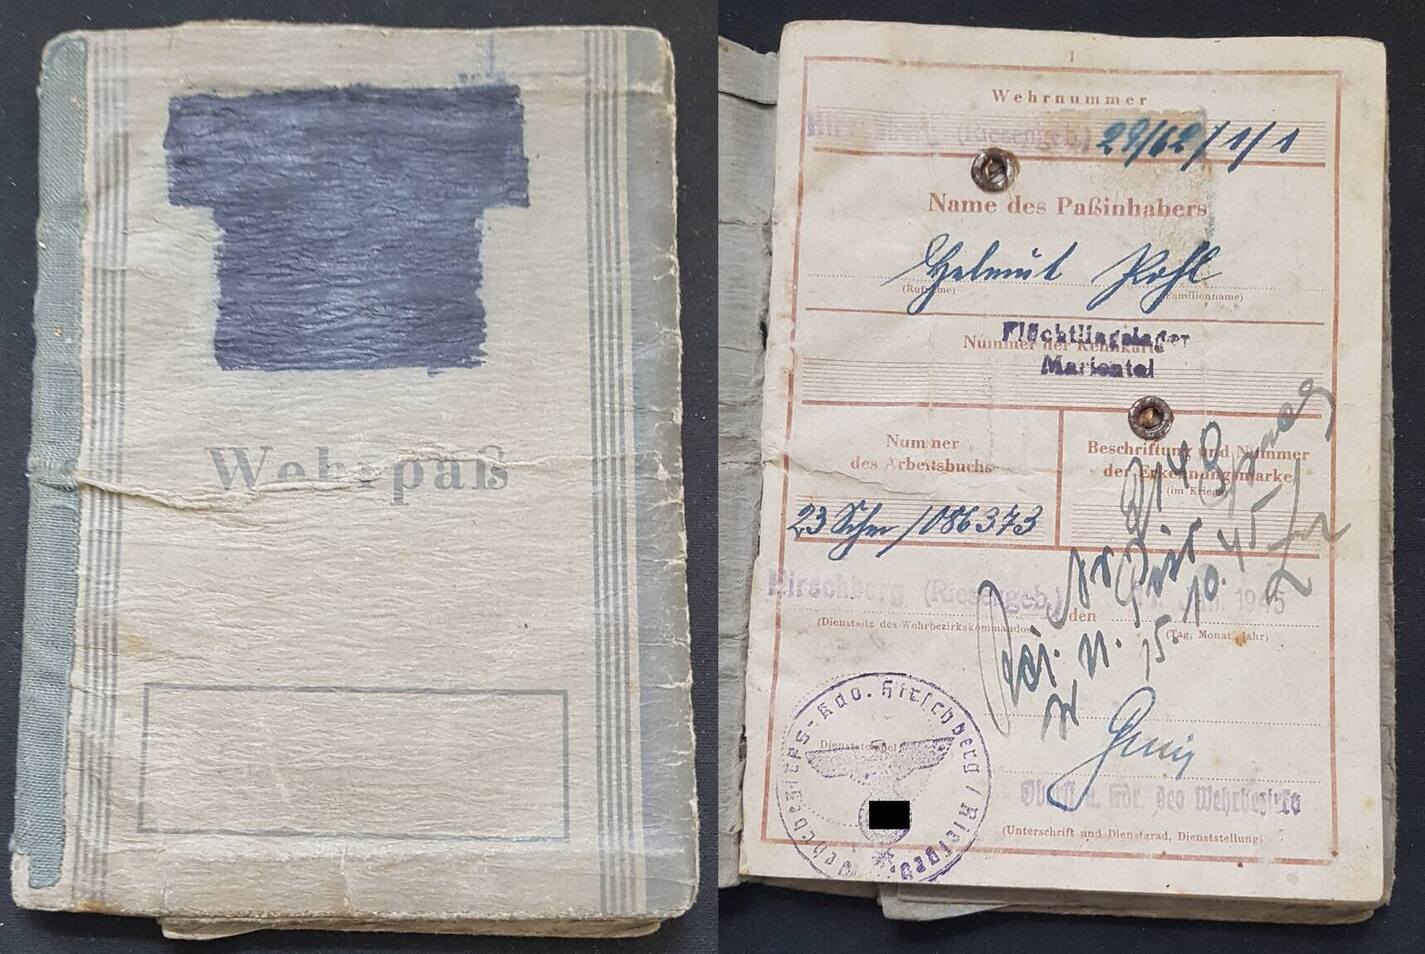 Wehrpaß
1
Wehrnummer
Hirschberg (Riesengeb.) 29/62/1/1
Name des Paßinhabers
Helmut Pohl
(Rufname) (Familienname)
Flüchtlingslager
Nummer der Kennkarte
Mariental
Nummer
des Arbeitsbuchs
Beschriftung und Nummer
der Erkennungsmarke
(im Kriege)
23 Schm /086373
Hirschberg (Riesengeb.) den Jan. 1945
(Dienstsitz des Wehrbezirkskommandos) (Tag, Monat, Jahr)
15. 10. 45
Wehrbezirks-Kdo. Hirschberg / Riesgeb.
Dienststempel
Oberst u. Kdr. des Wehrbezirks
(Unterschrift und Dienstgrad, Dienststellung)